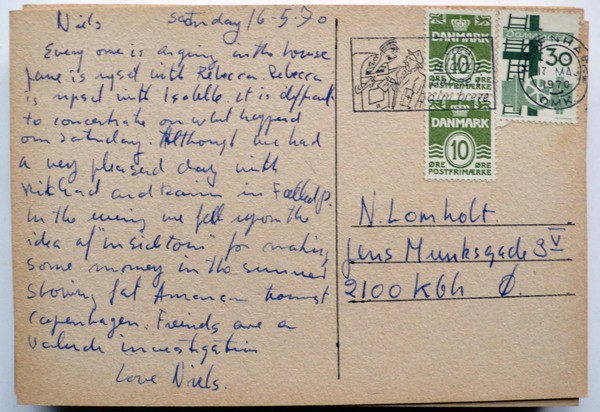 Niels   saturday 16-5-70
Every one is arging in the house
Jane is upsed with Rebecca. Rebecca
is upsed with Isabelle. it is difficult
to concentrate on what heppend
on saturday. Although we had
a very pleasend day with
and in Fælledp.
In the evening we fell upon the
idea of "insidetours" for making
some money in the summer
showing fat American tourist
Copenhagen. Friends are a
investigation
Love Niels.
DANMARK
10
ØRE ØRE
POSTFRIMÆRKE
DANMARK
10
ØRE ØRE
POSTFRIMÆRKE
30
1970
OMK.
N. Lomholt.
Jens Munksgade 3 V
2100 Kbh Ø.